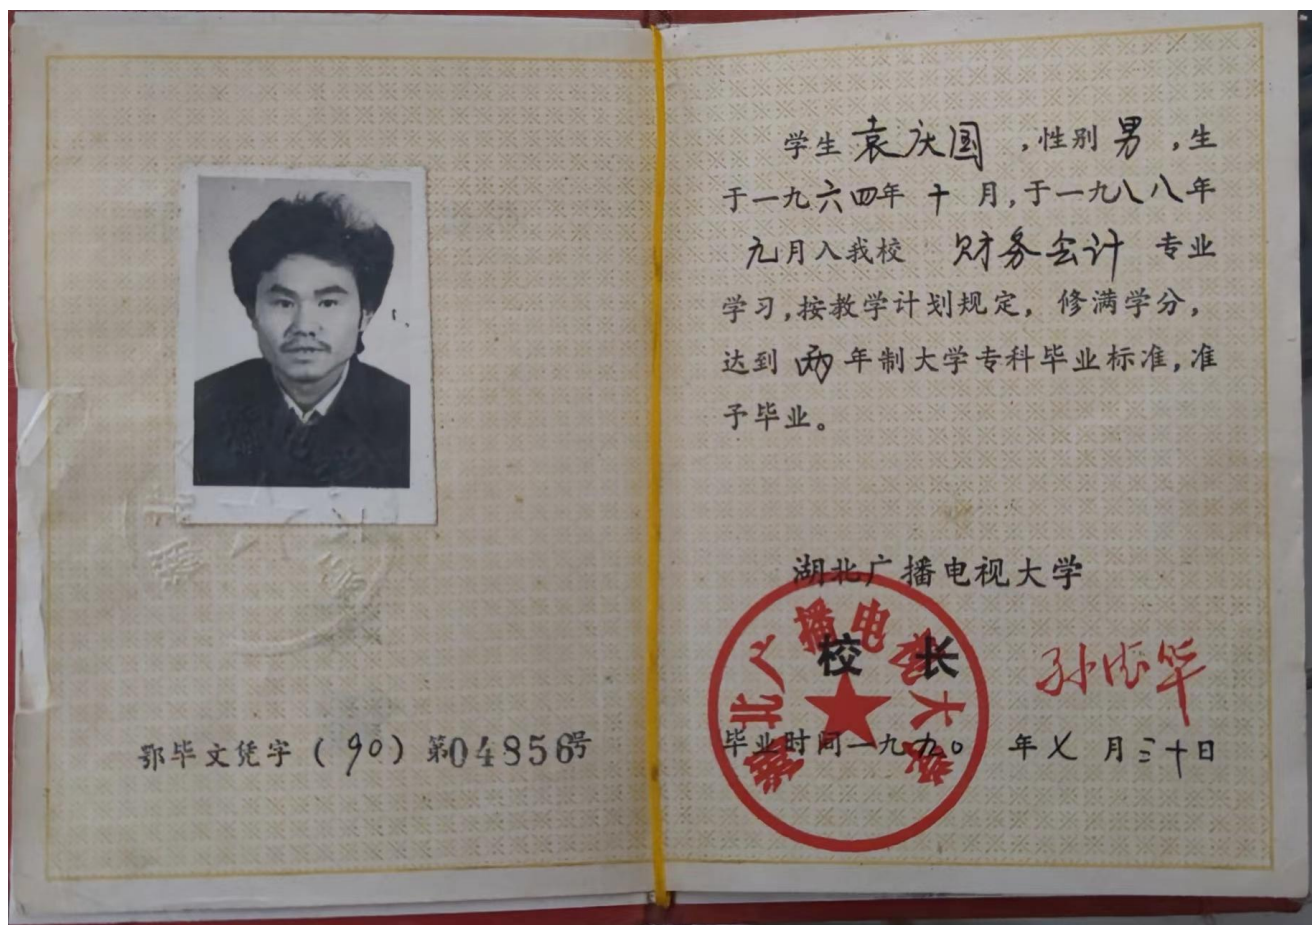 鄂毕文凭字(90)第04856号
学生袁庆国,性别男,生
于一九六四年十月,于一九八八年
九月入我校财务会计专业
学习,按教学计划规定,修满学分,
达到两年制大学专科毕业标准,准
予毕业。
湖北广播电视大学
校长
毕业时间一九九〇年七月三十日
湖北广播电视大学